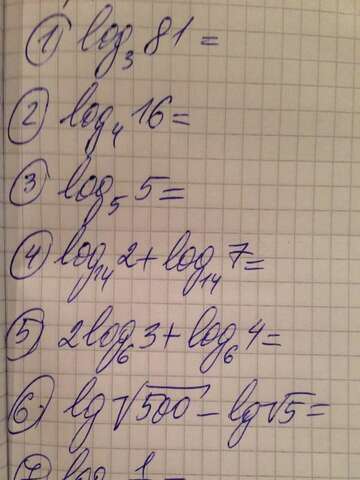 ① log₃ 81 =
② log₄ 16 =
③ log₅ 5 =
④ log₁₄ 2 + log₁₄ 7 =
⑤ 2 log₆ 3 + log₆ 4 =
⑥ lg √500 - lg √5 =